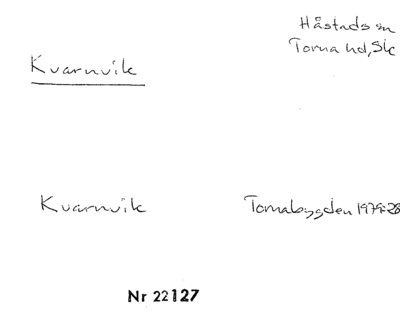 Håstads sn
Torna hd, Sk
Kvarnvik
Kvarnvik Tornabygden 1979:28
Nr 22127